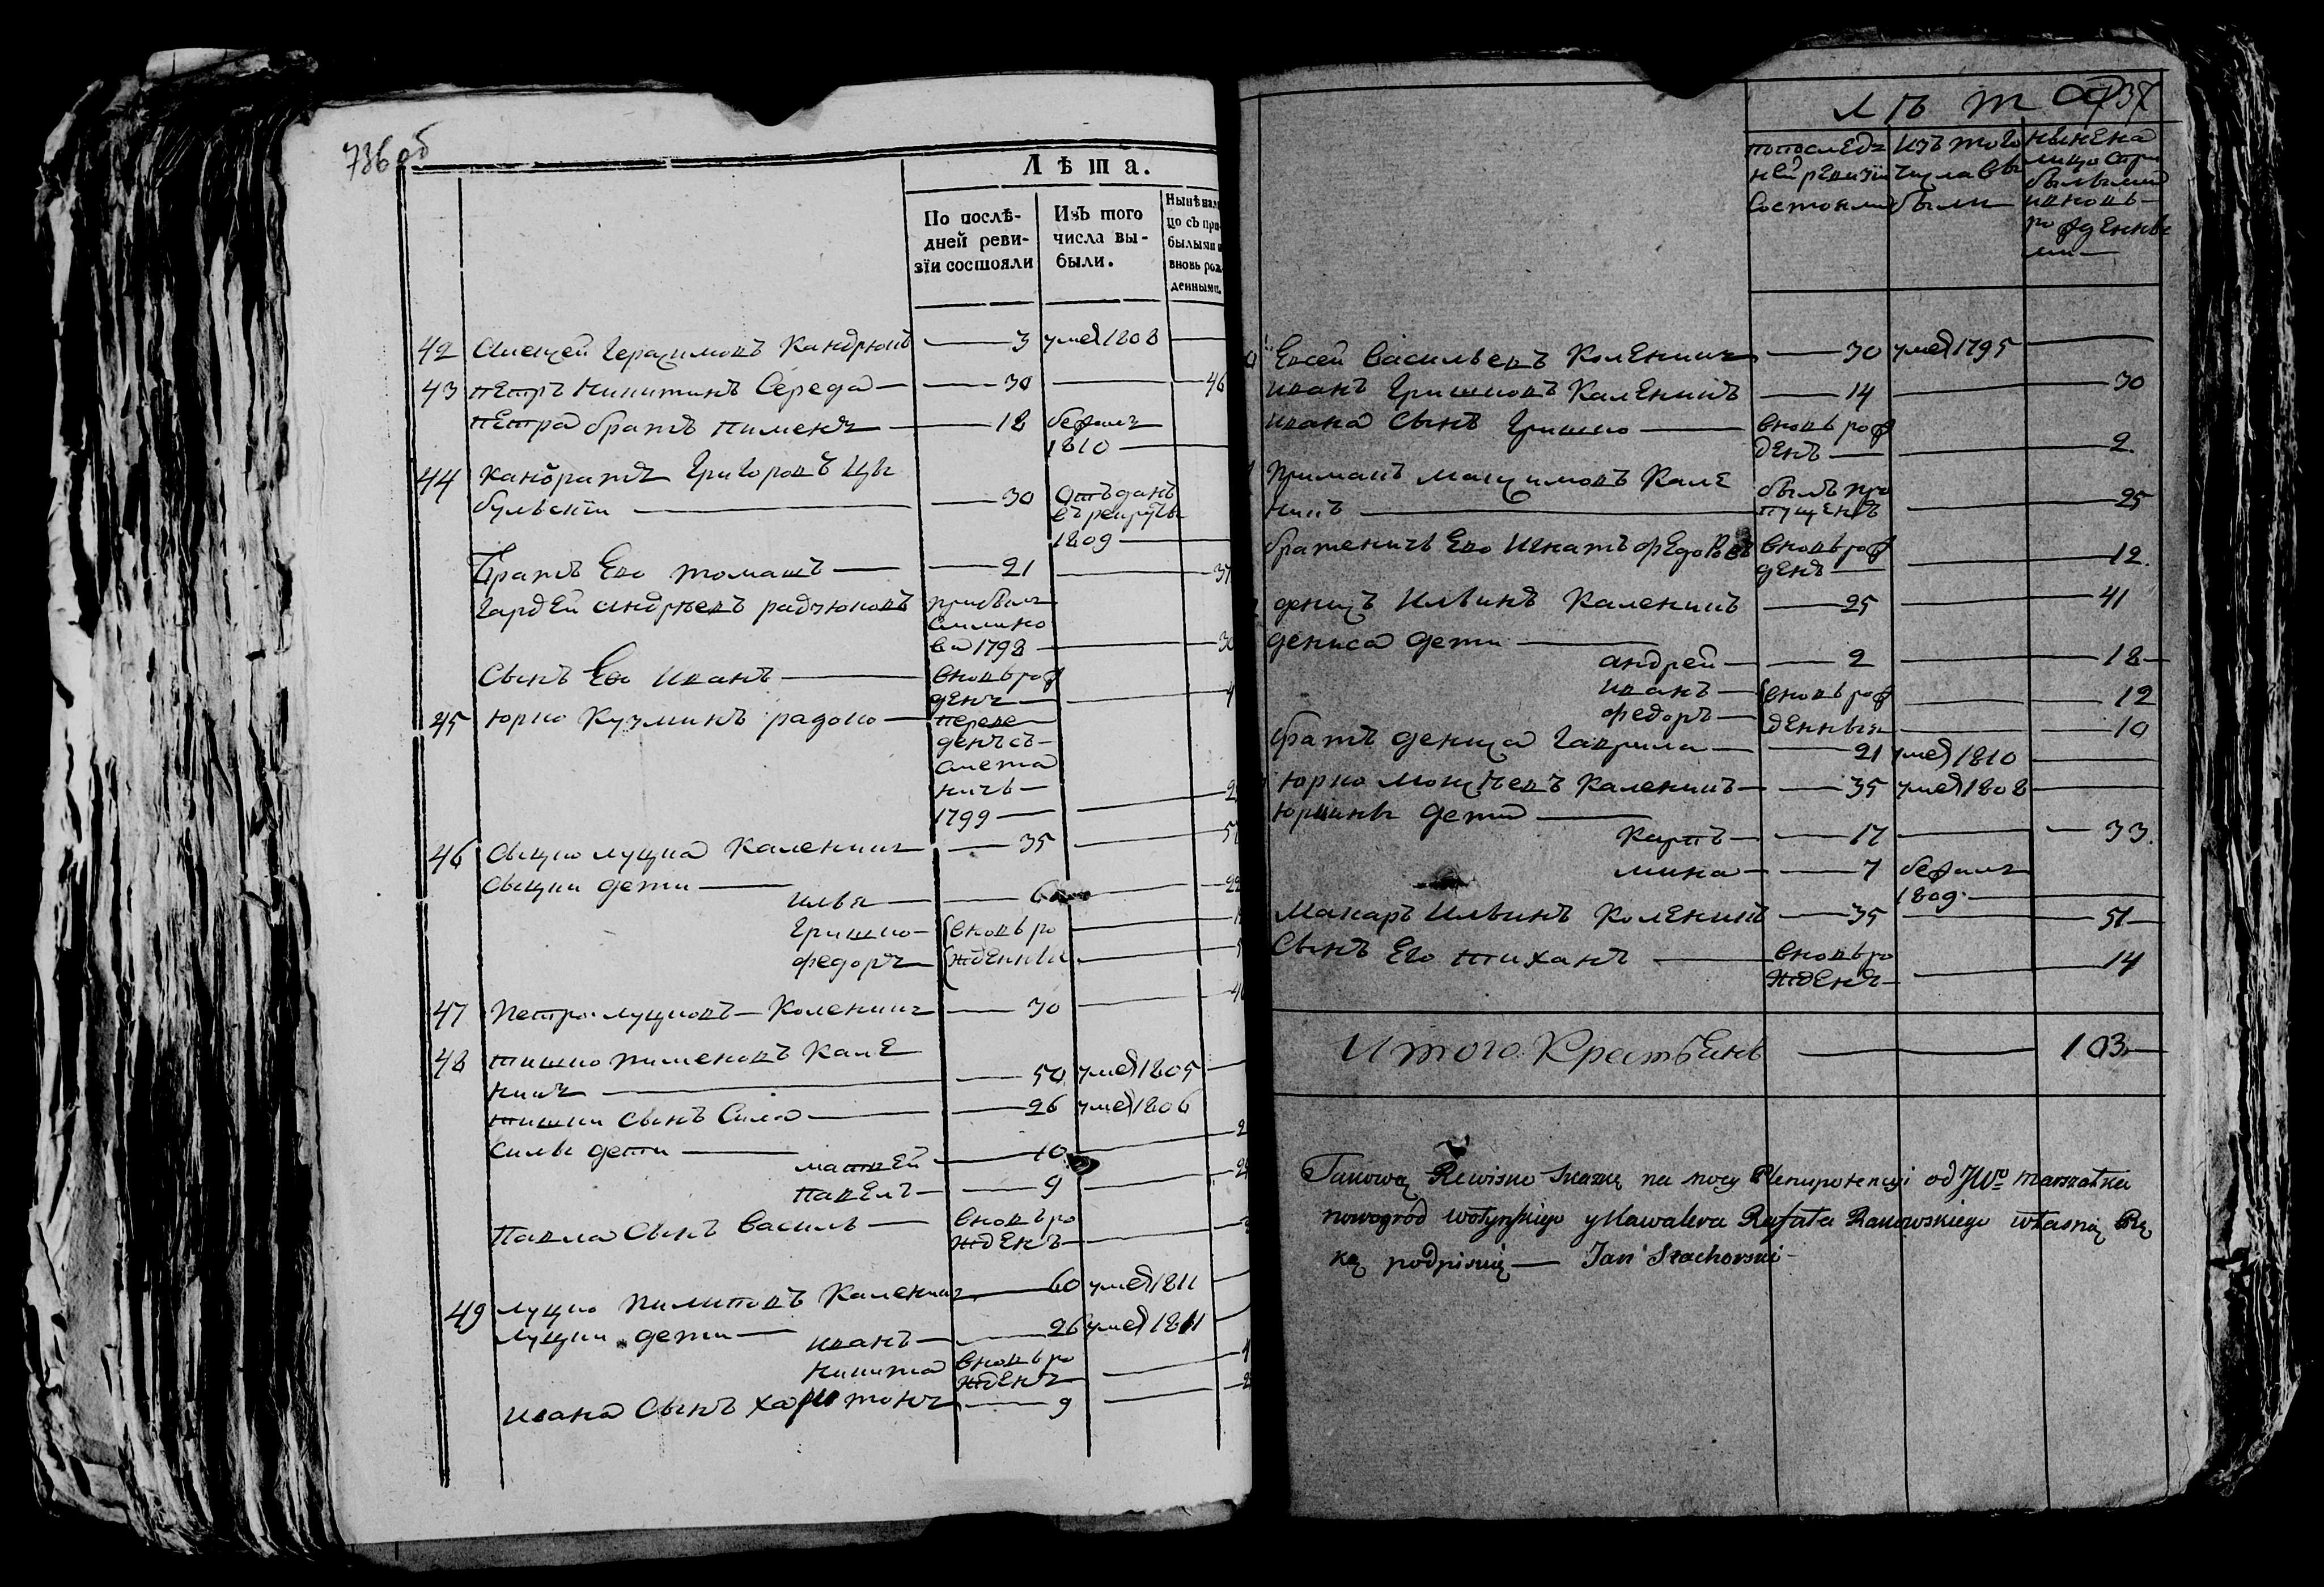 736 об
Лѣта.
По послѣ-
дней реви-
зїи состояли
Изъ того
числа вы-
были.
Нынѣ на ли
цо съ при
былыми и
вновь рож
денными.
42 Алексей Герасимовъ Кандрюкъ 3 умер 1808
43 петръ Никитинъ Середа 30 46
петра братъ пименъ 18 бежалъ
1810
44 Кандратъ Григоровъ Цы
бульскїи 30 Отъданъ
в рекруты
1809
Братъ Ево томашъ 21 37
Гардей андреевъ радчюковъ прибылъ
ва 1798 30
Сынъ Ево иванъ вновь рож
денъ 4
45 юрко Кузминъ радько переве
денъ съ
1799
46 Сыцко луцка Каленикъ 35
Сыцки дети
илья 6
Гришко вновь ро
федоръ жденныи
47 Петро луцковъ Каленикъ 30
48 тишко пименовъ Кале
никъ 50 умер 1805
тишки сынъ Сила 26 умер 1806
Силы дети
матвей 10
павелъ 9
павла сынъ василь вновь ро
жденъ
49 луцко пилиповъ Каленикъ 60 умер 1811
луцки дети
иванъ 26 умер 1811
никита вновь ро
жденъ
ивана Сынъ харитонъ 9
Лѣта 737
попоследъ
ней ревизїи
состояли
изъ того
числа вы
были
ныне на
лицо с при
былыми
ивновь
рожденны
ми
Евсей васильевъ Каленикъ 30 умер 1795
иванъ Гришковъ Каленикъ 14 30
ивана сынъ Гришко вновь рож
денъ 2
примакъ макимовъ Кале
никъ былъ про
пущенъ 25
братеничъ Ево Игнатъ федоровъ вновь рож
денъ 12
денисъ Ильинъ Каленикъ 25 41
дениса дети
андрей 2 18
иванъ вновь рож 12
федоръ денныя 10
братъ дениса гаврила 21 умер 1810
юрко мокѣевъ Каленикъ 35 умер 1808
юркины дети
карпъ 17 33
мина 7 бежалъ
1809
Макаръ Ильинъ Каленикъ 35 51
Сынъ Его тиханъ вновь ро
жденъ 14
Итого Крестьянъ 103
Takową Rewisko Skazkę na mocy Plenipotencyi od JWo marszałka
nowogród wołyńskiego y Kawalera Rafała Ranowskiego własną Rę
ką podpisuię — Jan Stachorski